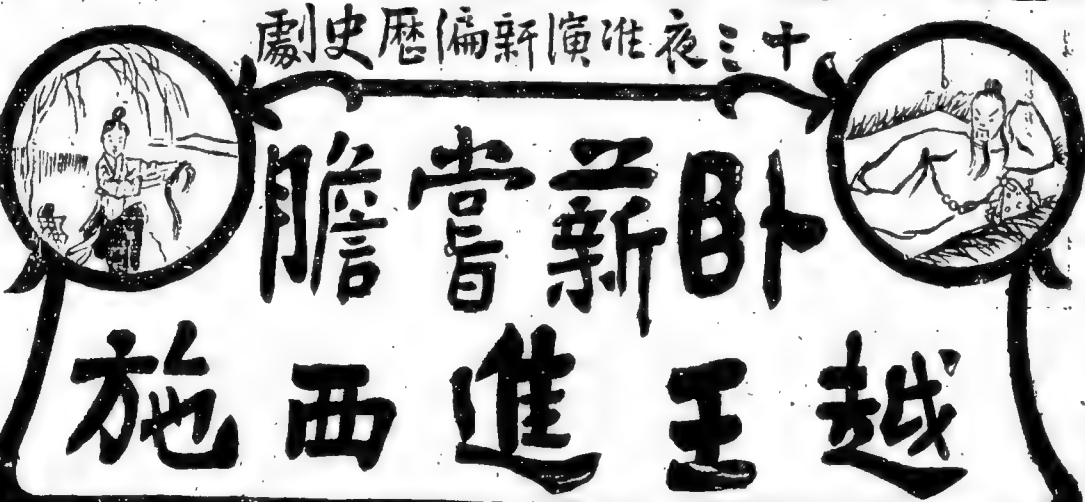 十三夜准演新編歷史劇
卧薪嘗膽
越王進西施